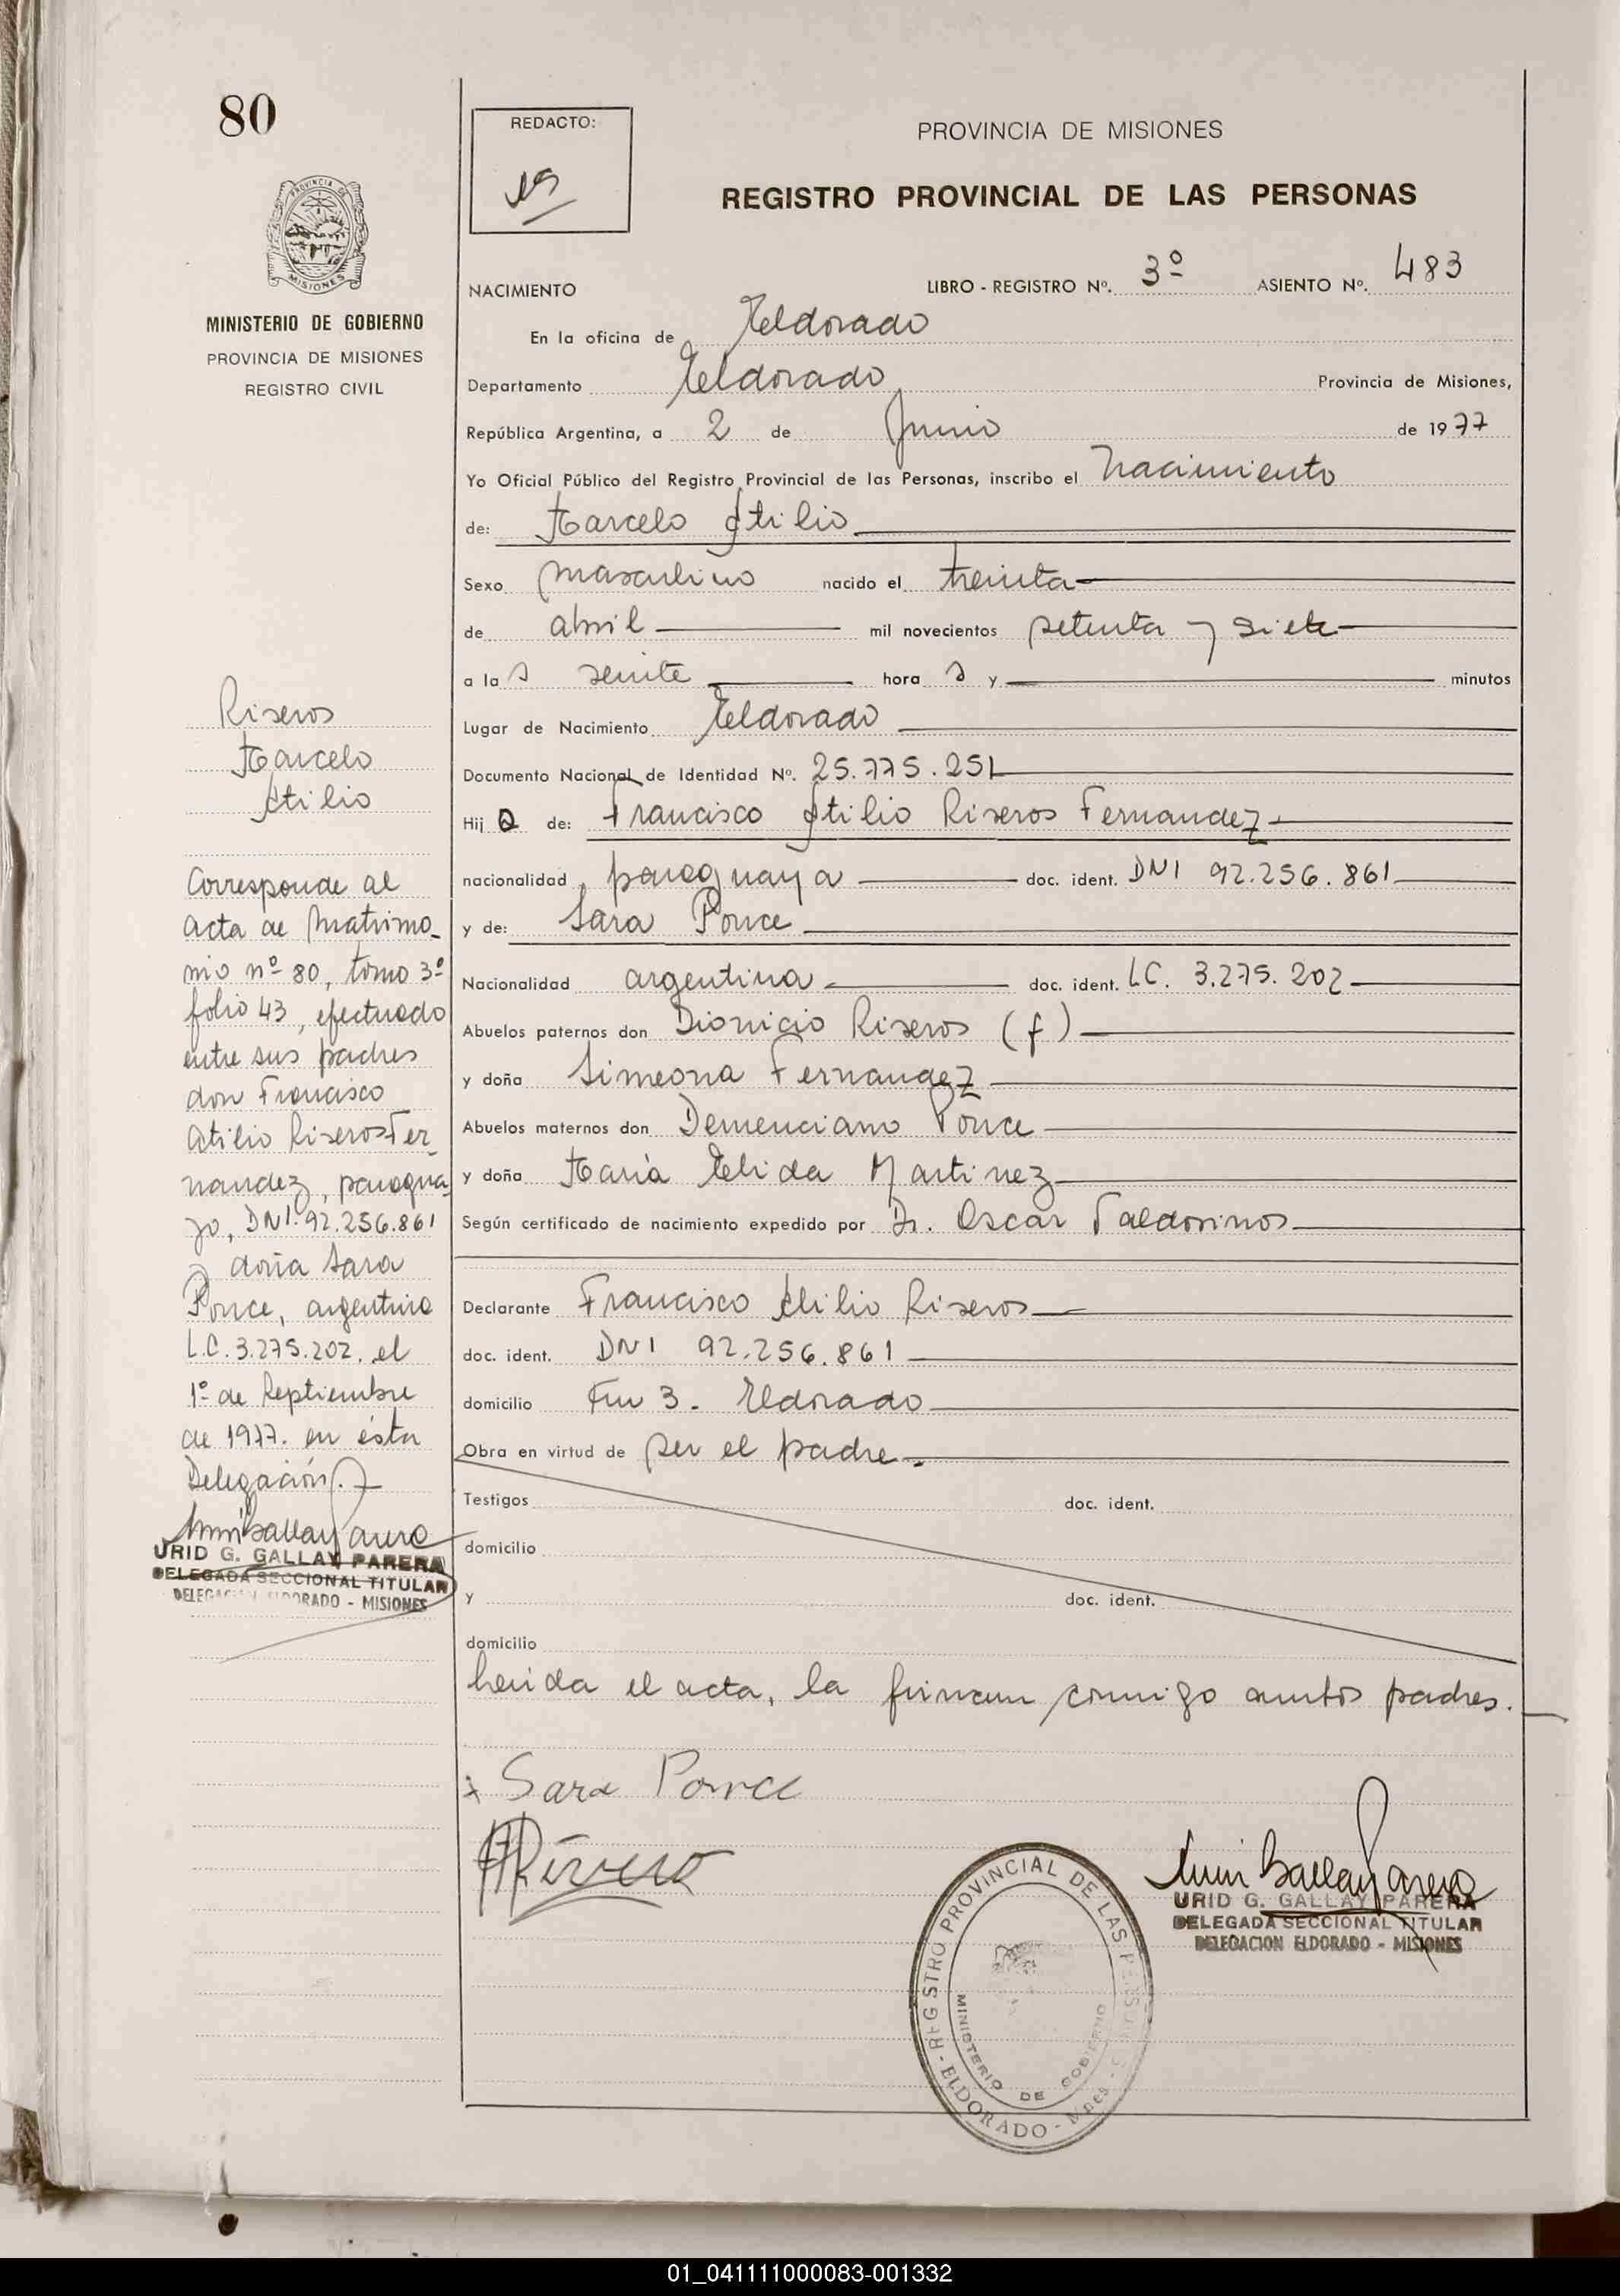 80
REDACTO:
PROVINCIA DE MISIONES
REGISTRO PROVINCIAL DE LAS PERSONAS
PROVINCIA DE
MISIONES
MINISTERIO DE GOBIERNO
PROVINCIA DE MISIONES
REGISTRO CIVIL
NACIMIENTO LIBRO - REGISTRO Nº. 3º ASIENTO Nº. 483
En la oficina de Eldorado
Departamento Eldorado Provincia de Misiones,
República Argentina, a 2 de Junio de 1977
Yo Oficial Público del Registro Provincial de las Personas, inscribo el Nacimiento
de: Marcelo Atilio
Sexo masculino nacido el treinta
de abril mil novecientos setenta y siete
a las veinte horas y minutos
Lugar de Nacimiento Eldorado
Documento Nacional de Identidad Nº. 25.775.251
Hijo de: Francisco Atilio Riveros Fernandez
nacionalidad paraguaya doc. ident. DNI 92.256.861
y de: Sara Ponce
Nacionalidad argentina doc. ident. LC. 3.275.202
Abuelos paternos don Dionicio Riveros (f)
y doña Simeona Fernandez
Abuelos maternos don Demenciano Ponce
y doña María Elida Martinez
Según certificado de nacimiento expedido por Dr. Oscar Valdovinos
Declarante Francisco Atilio Riveros
doc. ident. DNI 92.256.861
domicilio Km 3. Eldorado
Obra en virtud de ser el padre.
Testigos doc. ident.
domicilio
y doc. ident.
domicilio
Leida el acta, la firman conmigo ambos padres.
Sara Ponce
URID G. GALLAY PARERA
DELEGADA SECCIONAL TITULAR
DELEGACION ELDORADO - MISIONES
REGISTRO PROVINCIAL DE LAS PERSONAS - ELDORADO - Mnes.
MINISTERIO DE GOBIERNO
Riveros
Marcelo
Atilio
Corresponde al
acta de Matrimo-
nio nº 80, tomo 3º
folio 43, efectuado
entre sus padres
don Francisco
Atilio Riveros Fer-
nandez, paragua-
yo, DNI. 92.256.861
y doña Sara
Ponce, argentina
L.C. 3.275.202, el
1º de Septiembre
de 1977. en ésta
Delegación.
URID G. GALLAY PARERA
DELEGADA SECCIONAL TITULAR
DELEGACION ELDORADO - MISIONES
01_041111000083-001332